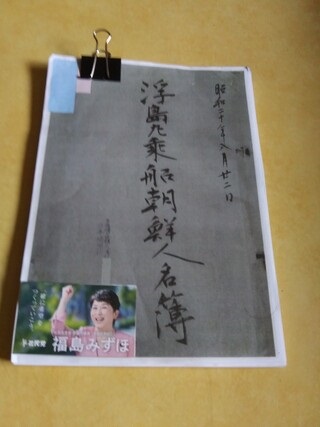 昭和二十年八月廿二日
浮島丸乗船朝鮮人名簿
社民党
福島みずほ